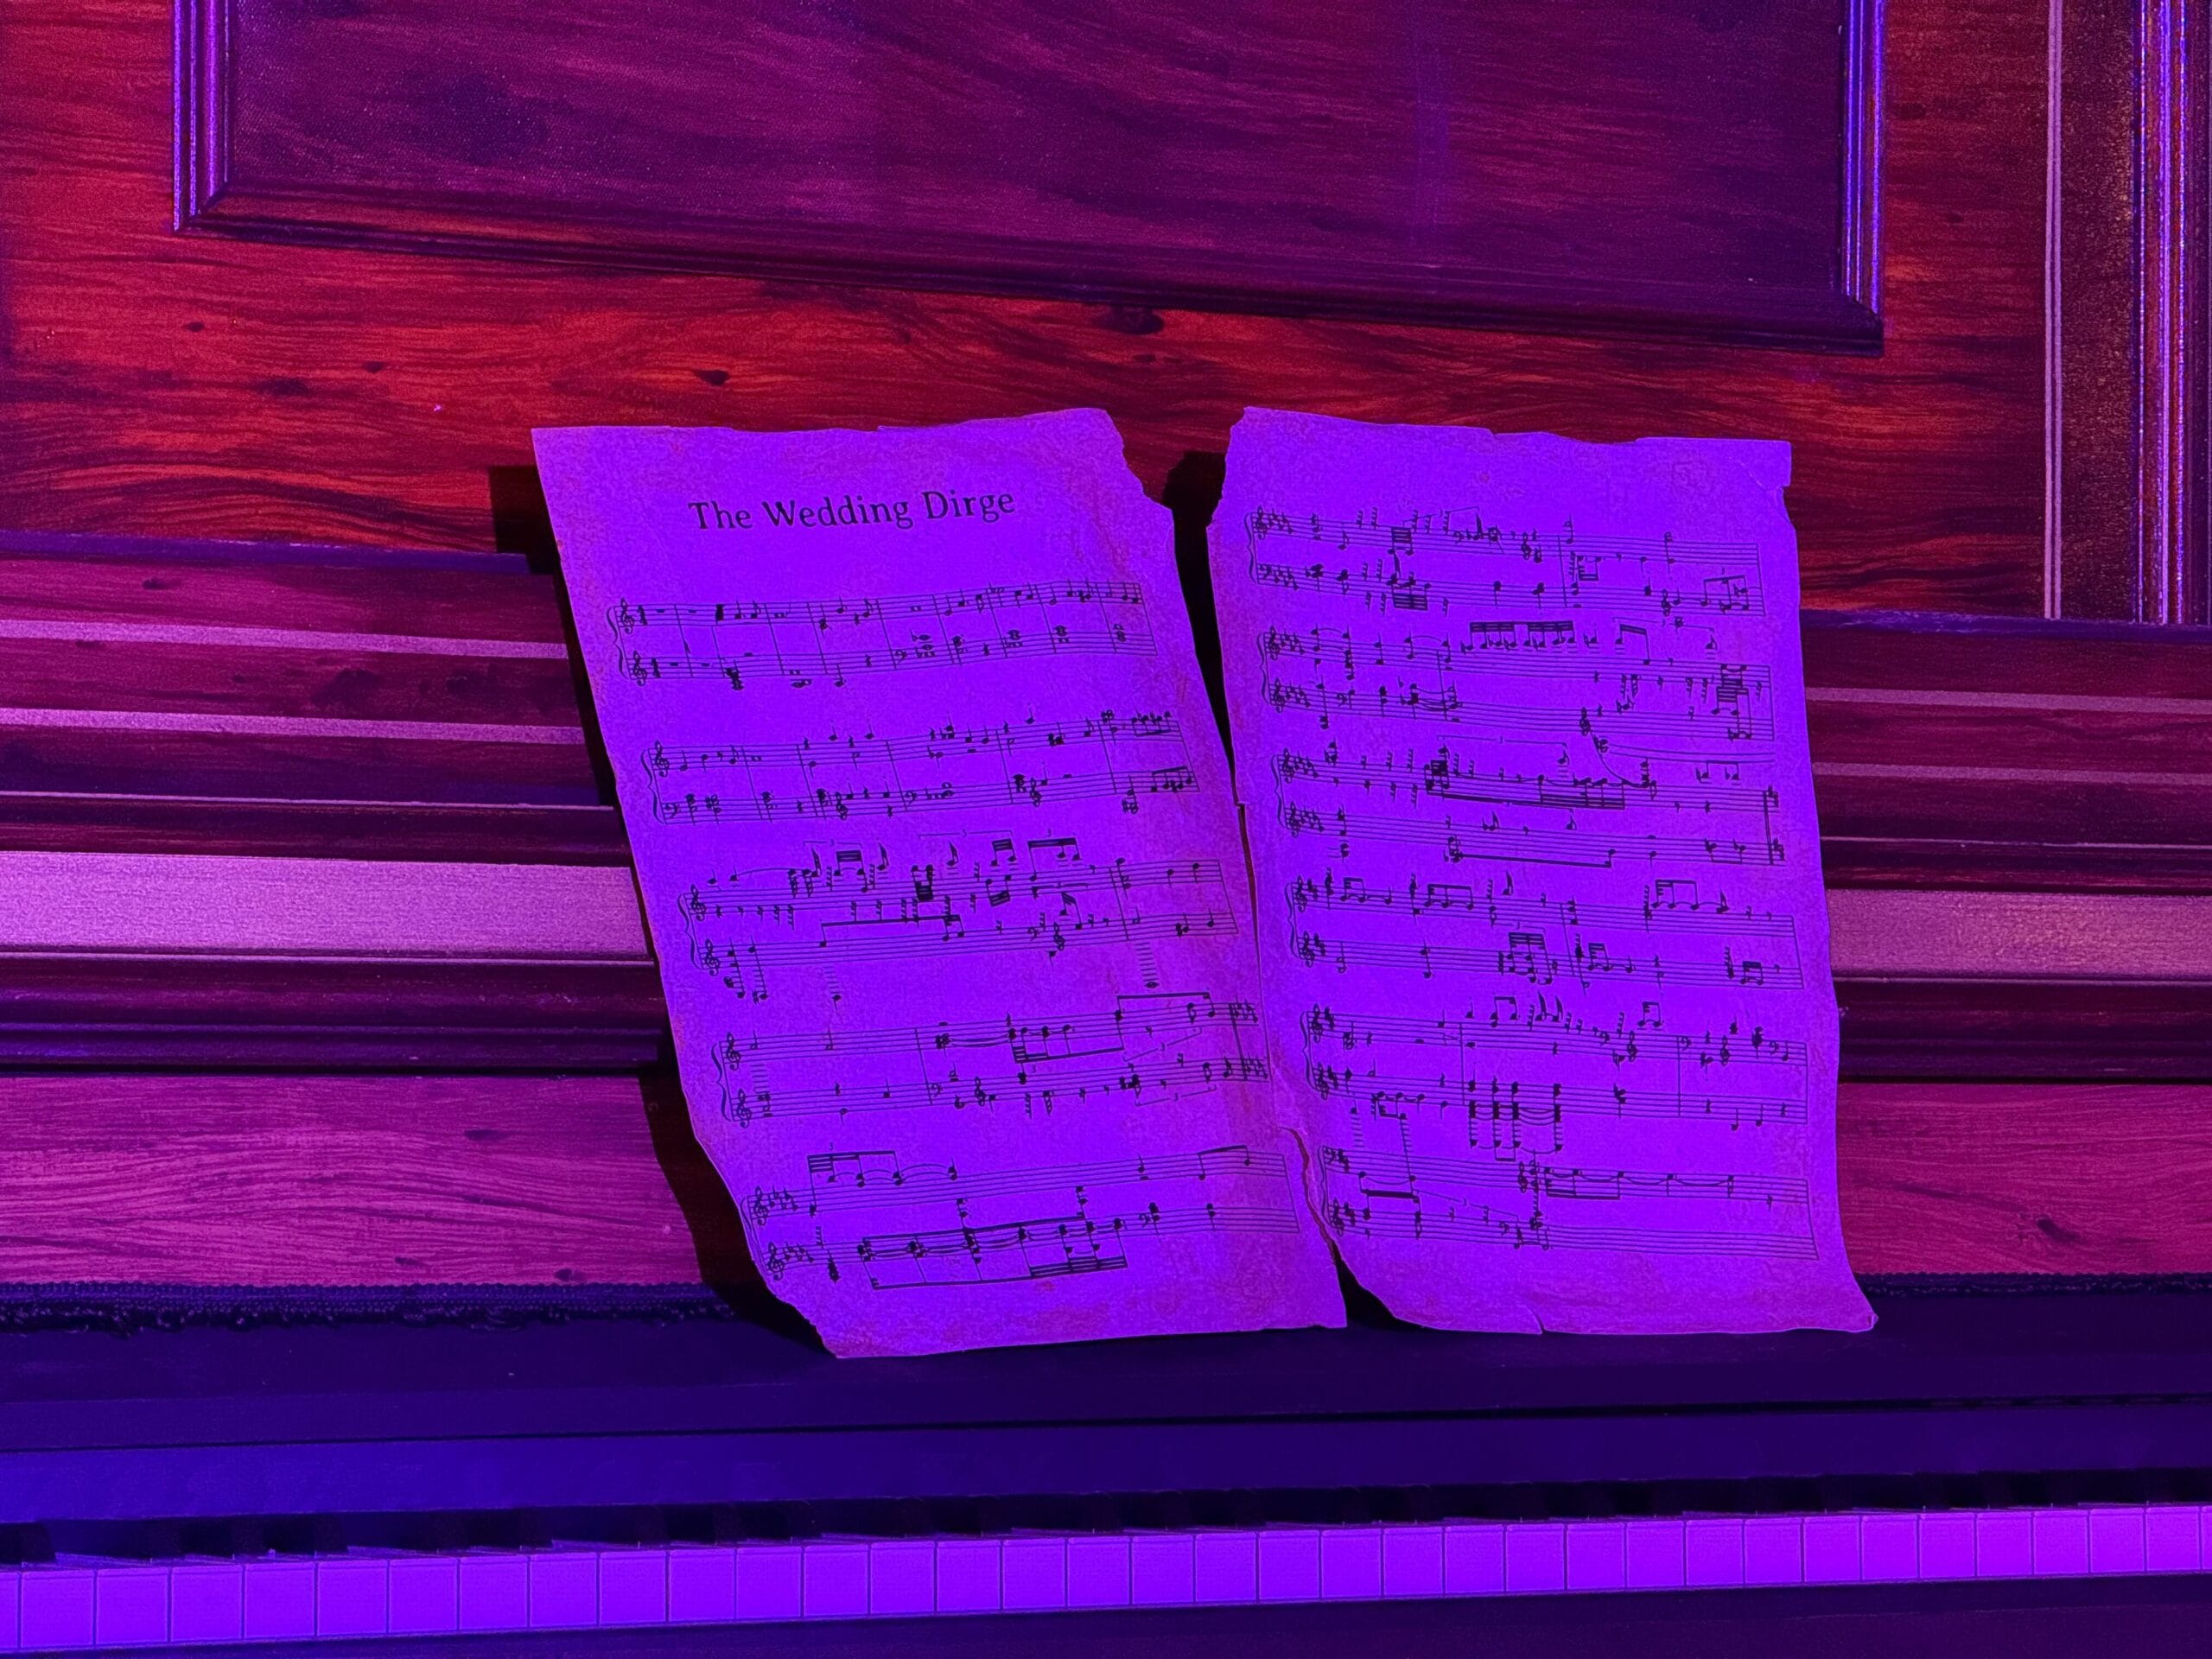 The Wedding Dirge